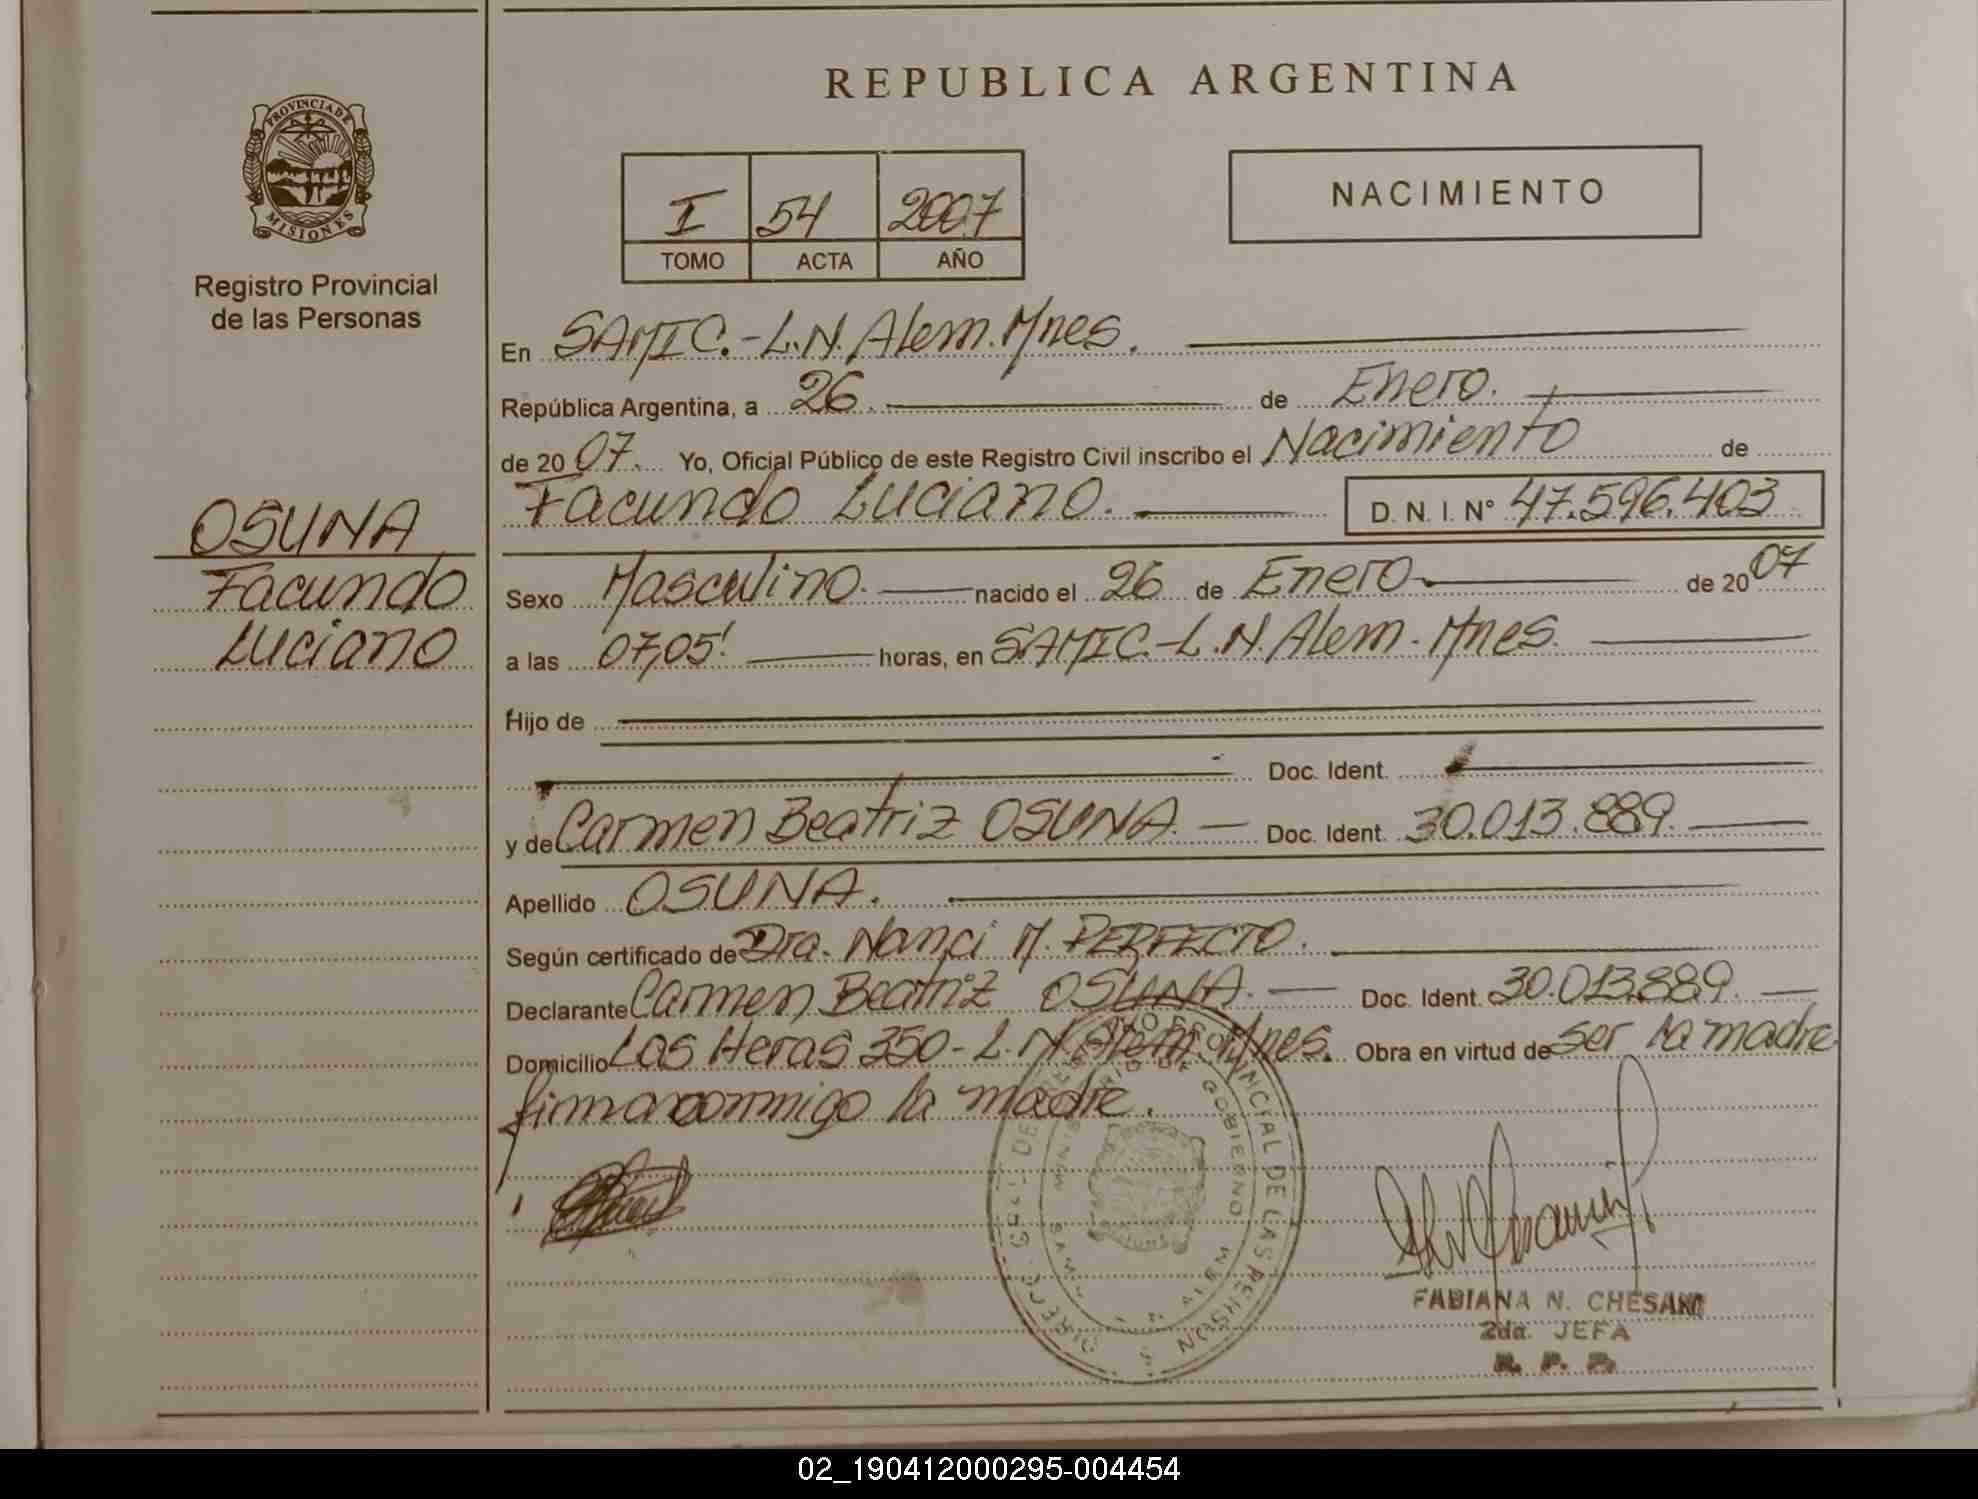 REPUBLICA ARGENTINA
PROVINCIA DE
MISIONES
Registro Provincial
de las Personas
I 54 2007
TOMO ACTA AÑO
NACIMIENTO
OSUNA
Facundo
Luciano
En SAMIC.-L.N. Alem. Mnes.
República Argentina, a 26. de Enero.
de 2007. Yo, Oficial Público de este Registro Civil inscribo el Nacimiento de
Facundo Luciano. D. N. I. N° 47.596.403
Sexo Masculino. nacido el 26 de Enero de 2007
a las 07,05' horas, en SAMIC.-L.N. Alem. Mnes.
Hijo de
Doc. Ident.
y de Carmen Beatriz OSUNA. Doc. Ident. 30.013.889.
Apellido OSUNA.
Según certificado de Dra. Nanci M. PERFECTO.
Declarante Carmen Beatriz OSUNA. Doc. Ident. 30.013.889.
Domicilio Las Heras 350-L.N. Alem. Mnes. Obra en virtud de ser la madre
firma conmigo la madre.
FABIANA N. CHESANI
2da. JEFA
R. P. P.
02_190412000295-004454